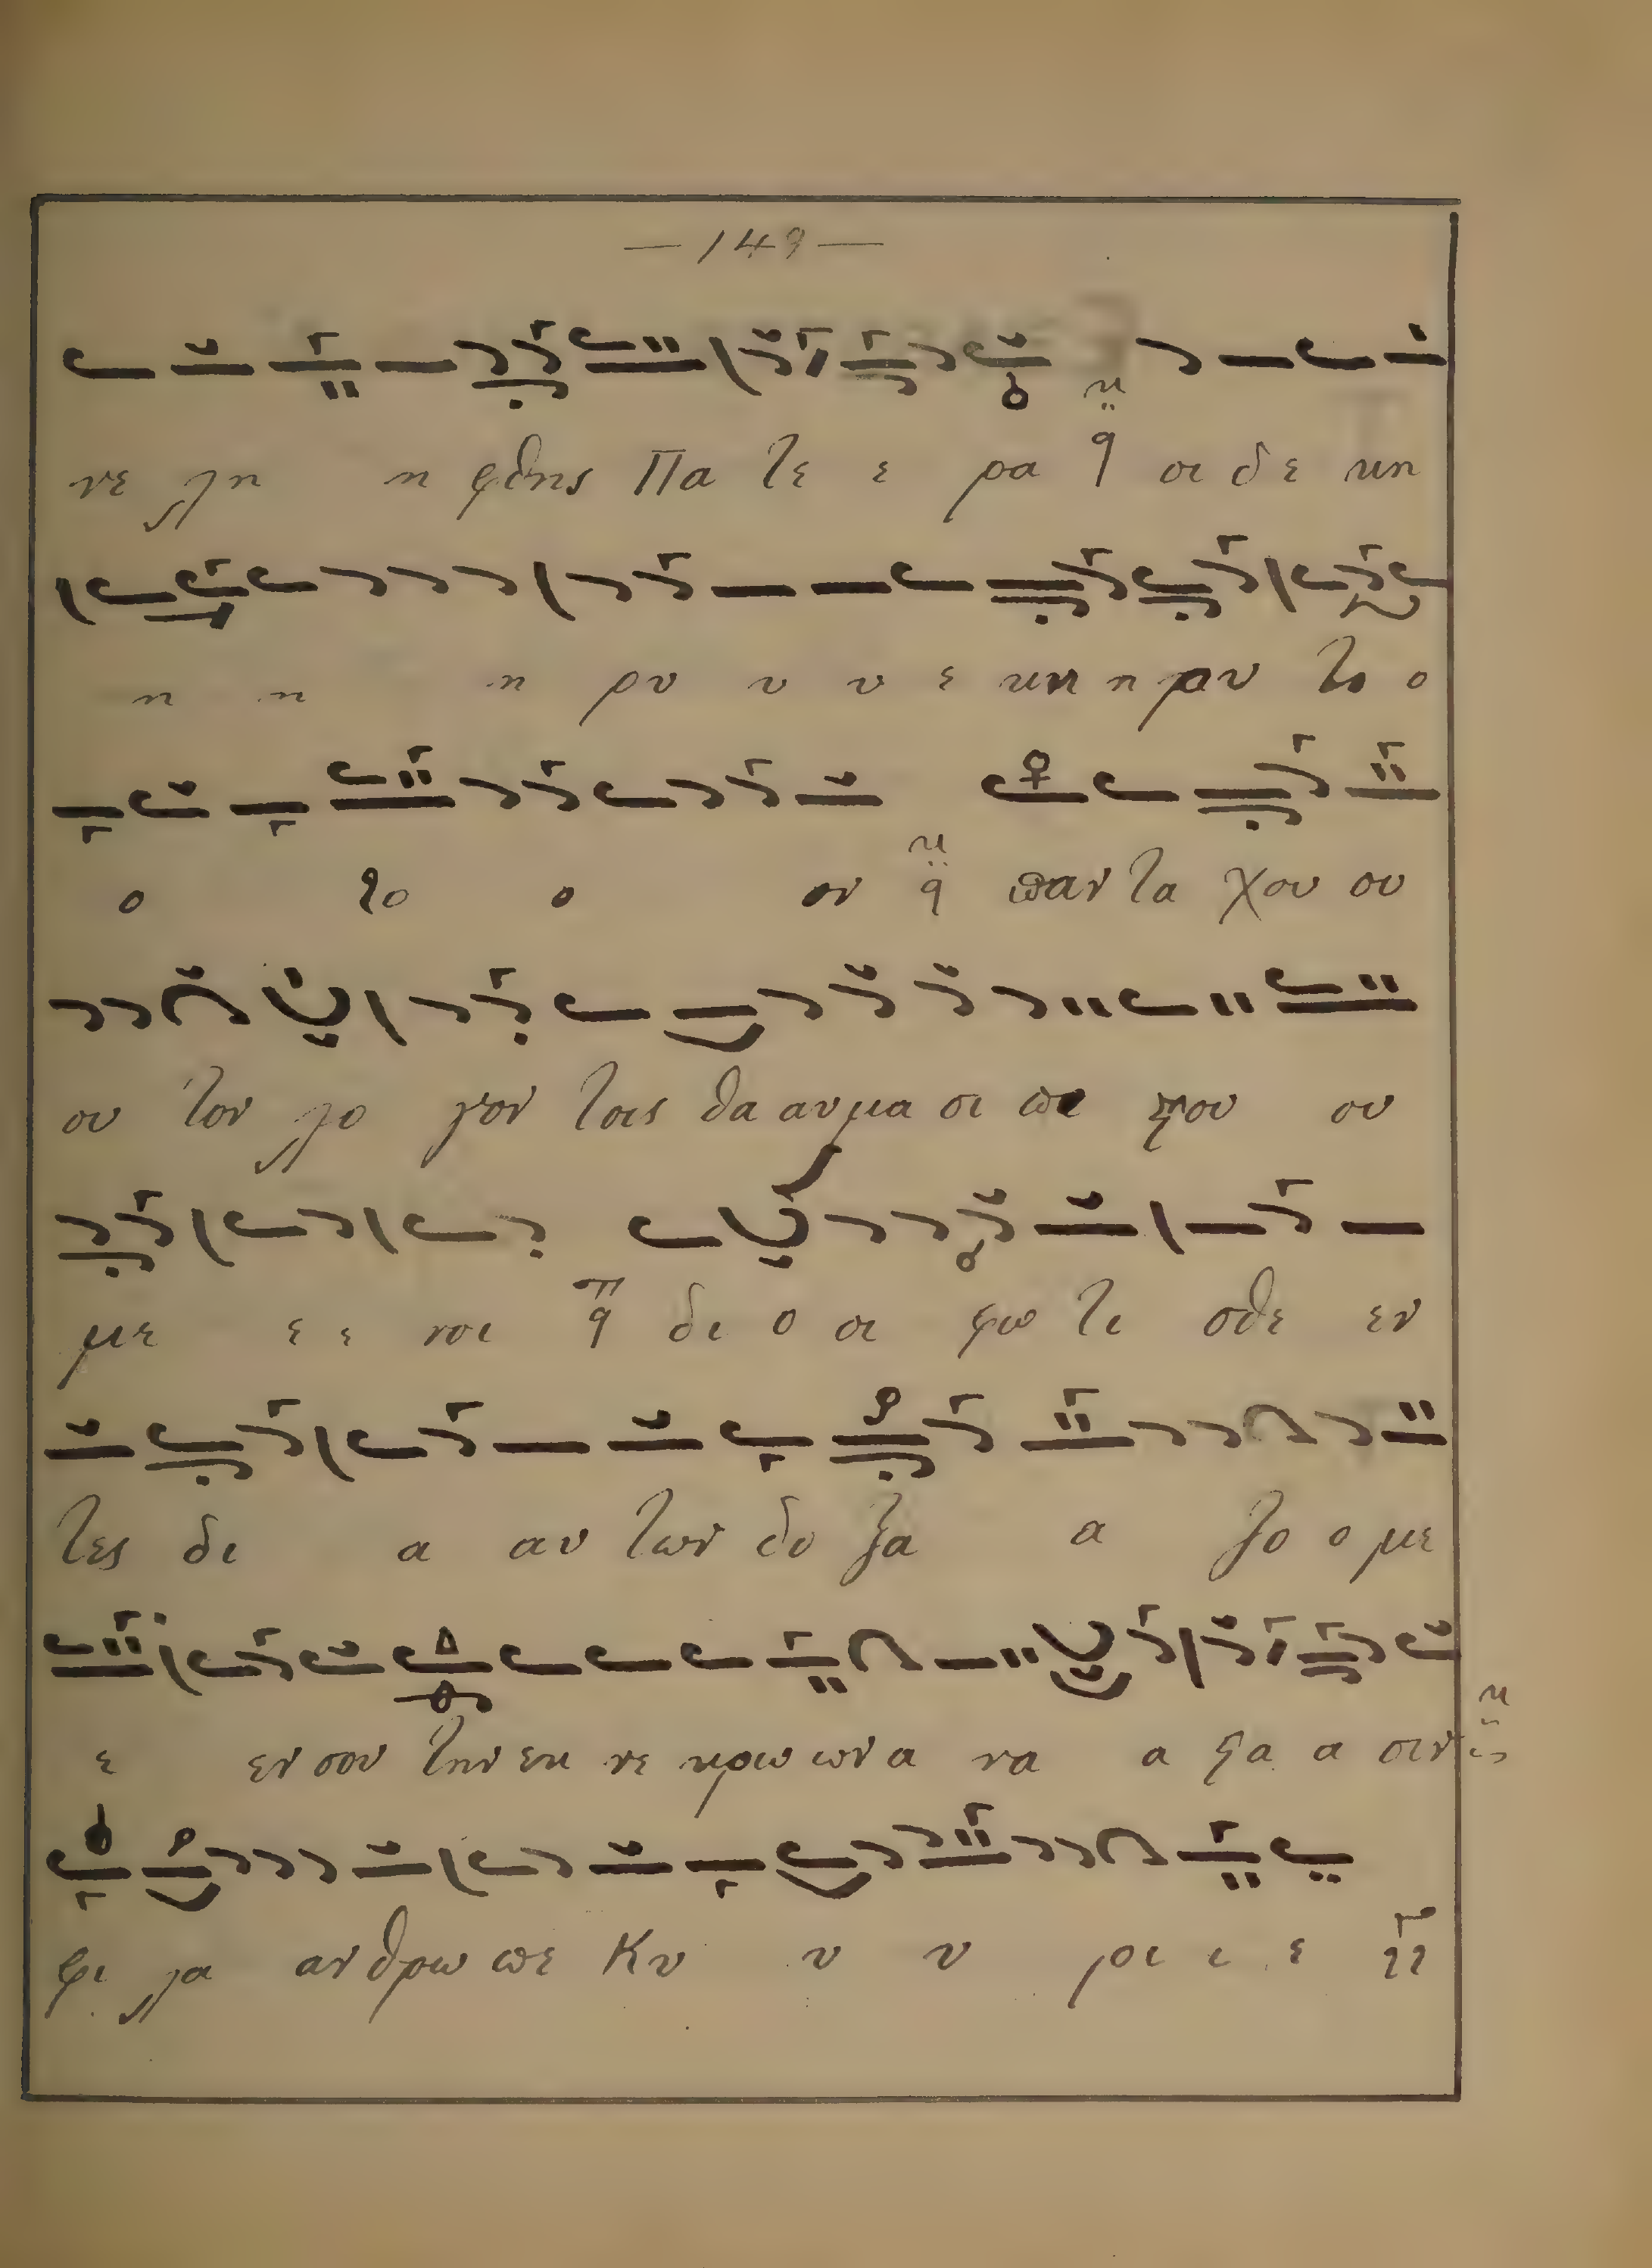 — 149 —
νε λη η φθης Πα τε ε ρα οι δε κη
η η η ρυ υ υ ε κη η ρυ το ο
ο το ο ον παν τα χου ου
ου τον λο γον τοις θα αυ μα σι πε που ου
με ε ε νοι δι ο οι φω τι σθε εν
τες δι α αυ των δο ξα α ζο ο με
ε εν σου την εκ νε κρω ων α να α ςα α σιν
φι λα αν θρω πε Κυ υ υ ρι ι ε